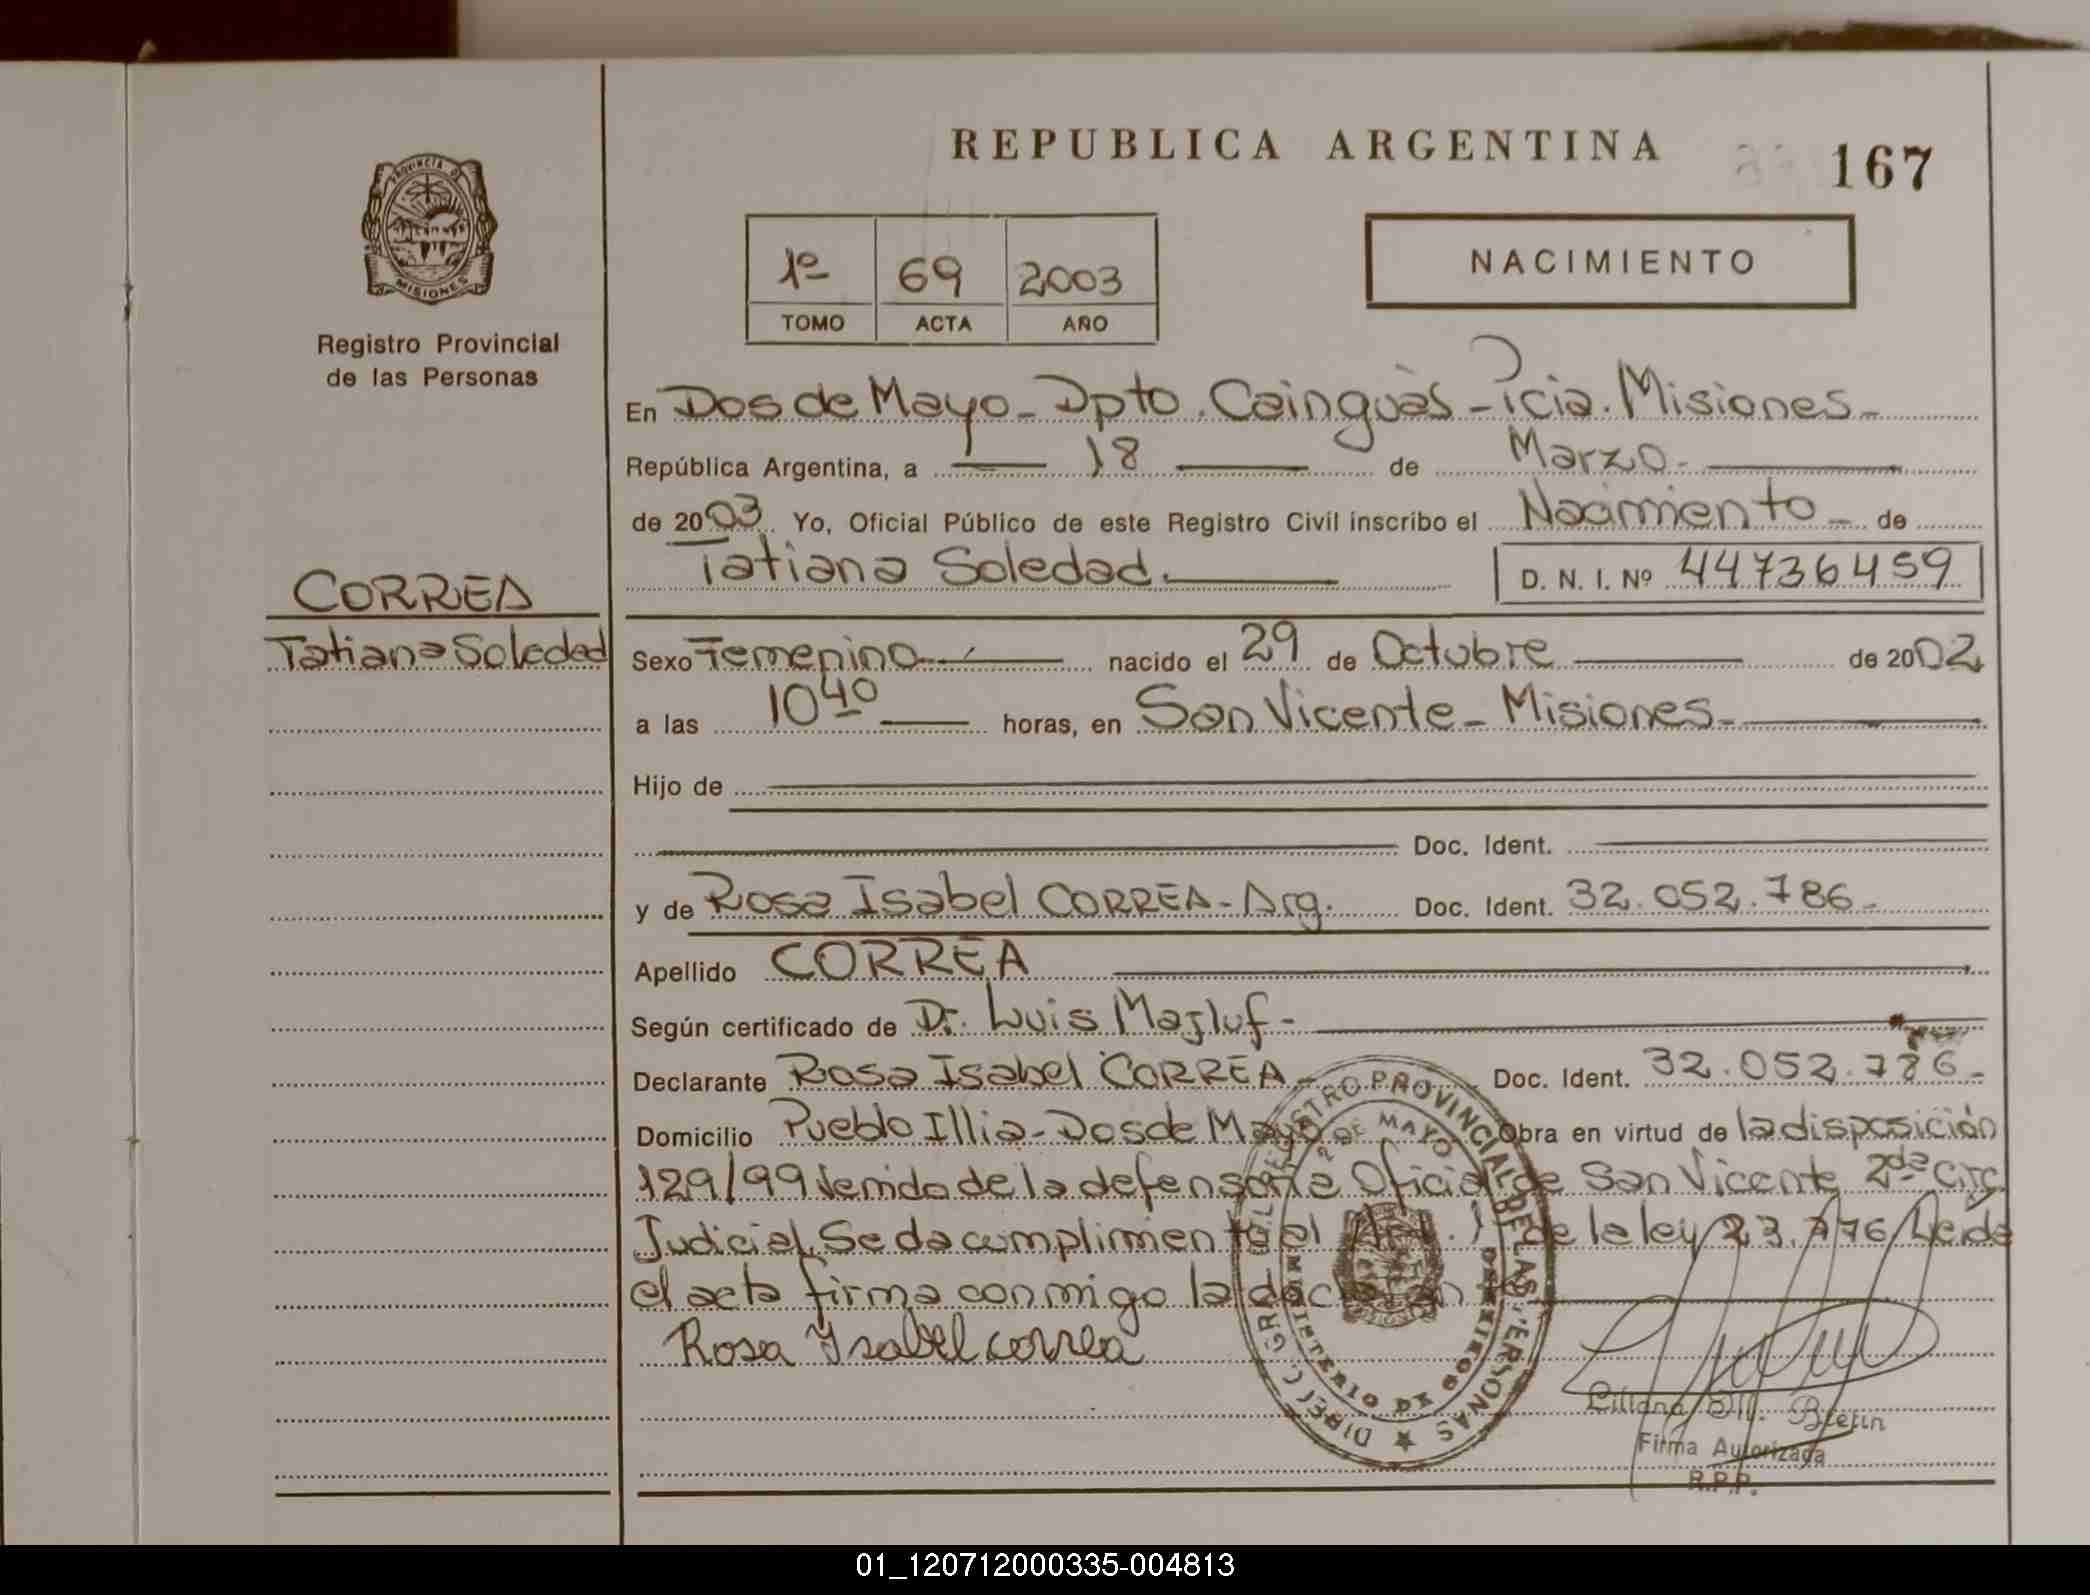 REPUBLICA ARGENTINA
167
PROVINCIA DE
MISIONES
Registro Provincial
de las Personas
1º 69 2003
TOMO ACTA AÑO
NACIMIENTO
En Dos de Mayo - Dpto. Cainguàs - Pcia. Misiones -
República Argentina, a 18 de Marzo -
de 2003 Yo, Oficial Público de este Registro Civil inscribo el Nacimiento - de
Tatiana Soledad. D. N. I. Nº 44736459
CORREA
Tatiana Soledad
Sexo Femenino nacido el 29 de Octubre de 2002
a las 10 40 horas, en San Vicente - Misiones -
Hijo de
Doc. Ident.
y de Rosa Isabel CORREA - Arg. Doc. Ident. 32.052.786 -
Apellido CORREA
Según certificado de Dr. Luis Majluf -
Declarante Rosa Isabel CORREA - Doc. Ident. 32.052.786 -
Domicilio Pueblo Illia - Dos de Mayo Obra en virtud de la disposición
129/99 venido de la defensoria Oficial de San Vicente 2da Circ
Judicial. Se da cumplimiento al Art. 1 de la ley 23.776 Leida
el acta firma conmigo la declarante
Rosa Isabel correa
REGISTRO PROVINCIAL DE LAS PERSONAS
2 DE MAYO
MINISTERIO DE GOBIERNO
Liliana M.
Firma Autorizada
R.P.P.
01_120712000335-004813